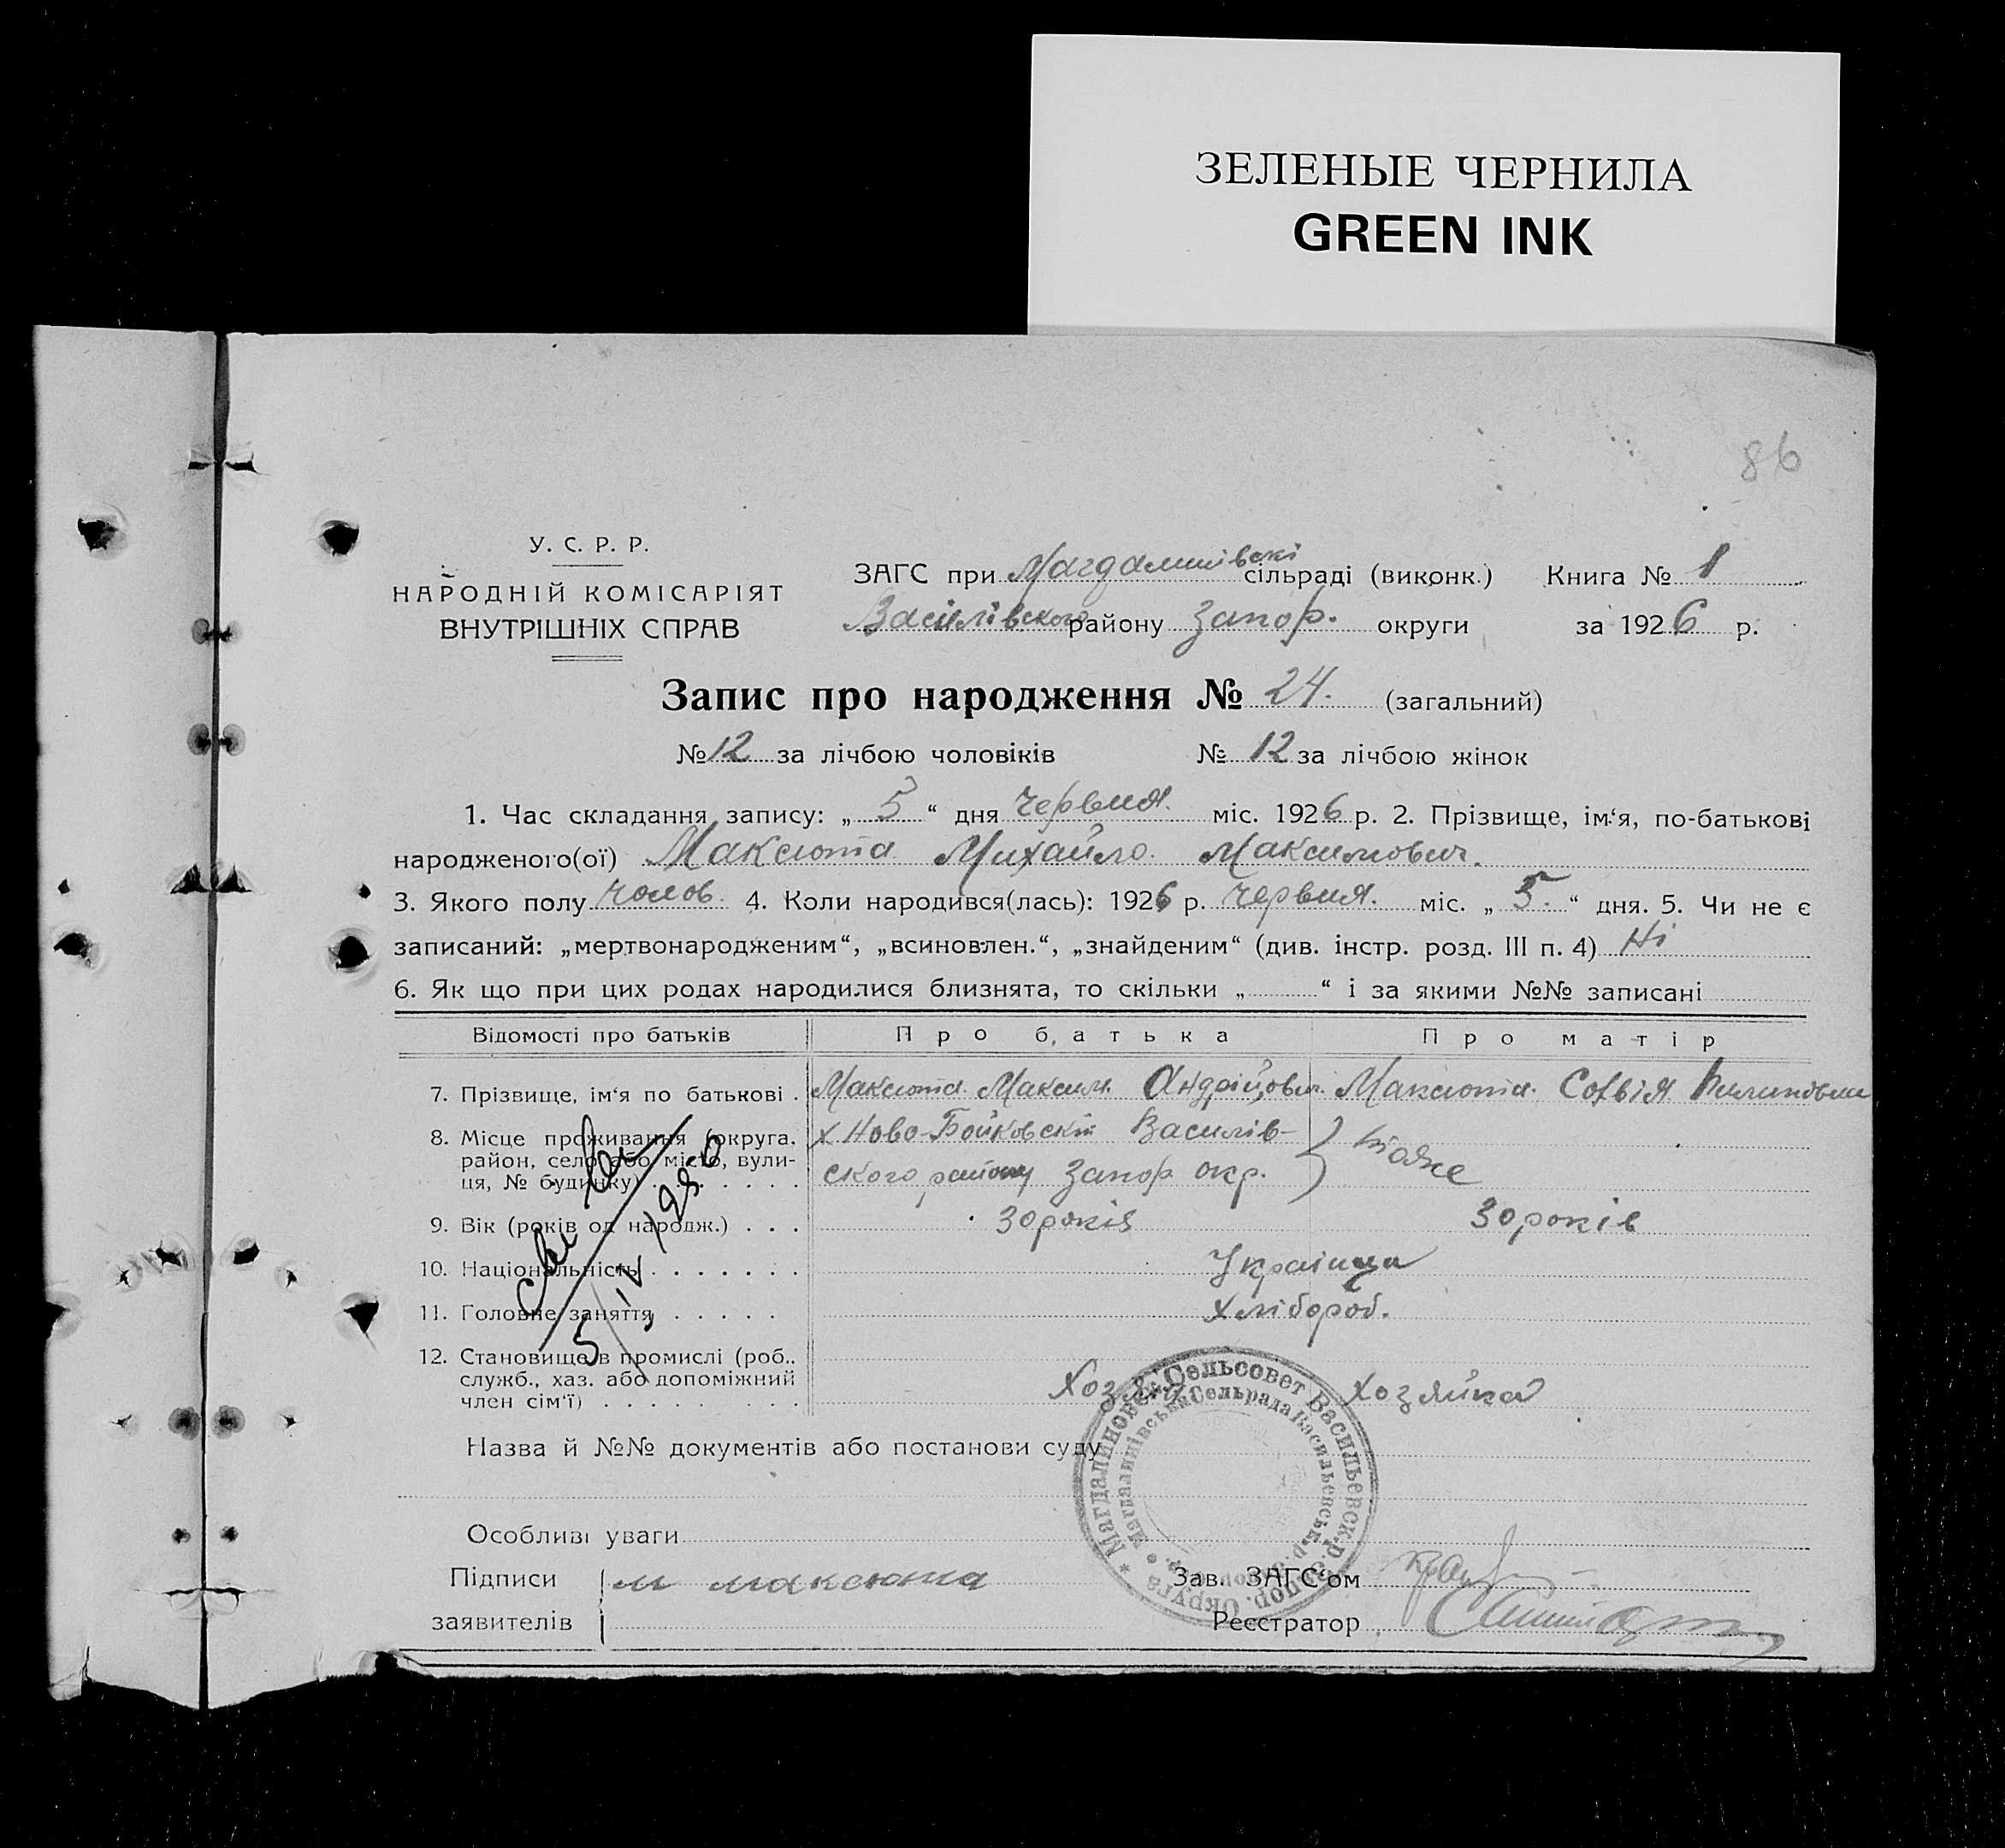 ЗЕЛЕНЫЕ ЧЕРНИЛА
GREEN INK
86
У. С. Р. Р.
НАРОДНІЙ КОМІСАРІЯТ
ВНУТРІШНІХ СПРАВ
ЗАГС при Магдалинівскі сільраді (виконк.) Книга № 1
Василівского району Запор. округи за 1926 р.
Запис про народження № 24. (загальний)
№ 12 за лічбою чоловіків № 12 за лічбою жінок
1. Час складання запису: „ 5 “ дня червня. міс. 1926 р. 2. Прізвище, ім‘я, по-батькові
народженого(ої) Максюта Михайло. Максимович.
3. Якого полу чолов. 4. Коли народився(лась): 1926 р. червня. міс. „ 5. “ дня. 5. Чи не є
записаний: „мертвонародженим“, „всиновлен.“, „знайденим“ (див. інстр. розд. III п. 4) Ні
6. Як що при цих родах народилися близнята, то скільки „ “ і за якими №№ записані
Відомості про батьків Про батька Про матір
7. Прізвище, ім‘я по батькові . Максюта. Максим. Андрійович. Максюта. Софвія Пилиповна
8. Місце проживання (округа, х Ново-Бойковскій Василів-
район, село або місто, вули- } тоже
ця, № будинку) . . . . . . . ского району Запор. окр.
9. Вік (років од народж.) . . . 30 років 30 років
10. Національність . . . . . . . Українці
11. Головне заняття . . . . . хлібороб.
12. Становище в промислі (роб.,
служб., хаз. або допоміжний Хозяін хозяйка
член сім‘ї) . . . . . . . . .
5/IV
Назва й №№ документів або постанови суду
Магдалиновск. Сельсовет Васильевск. р. Запор. Округа
Магдалинівська Сельрада Васильевськ. р.
Особливі уваги
Підписи м максюта Зав. ЗАГС‘ом
заявителів Реєстратор